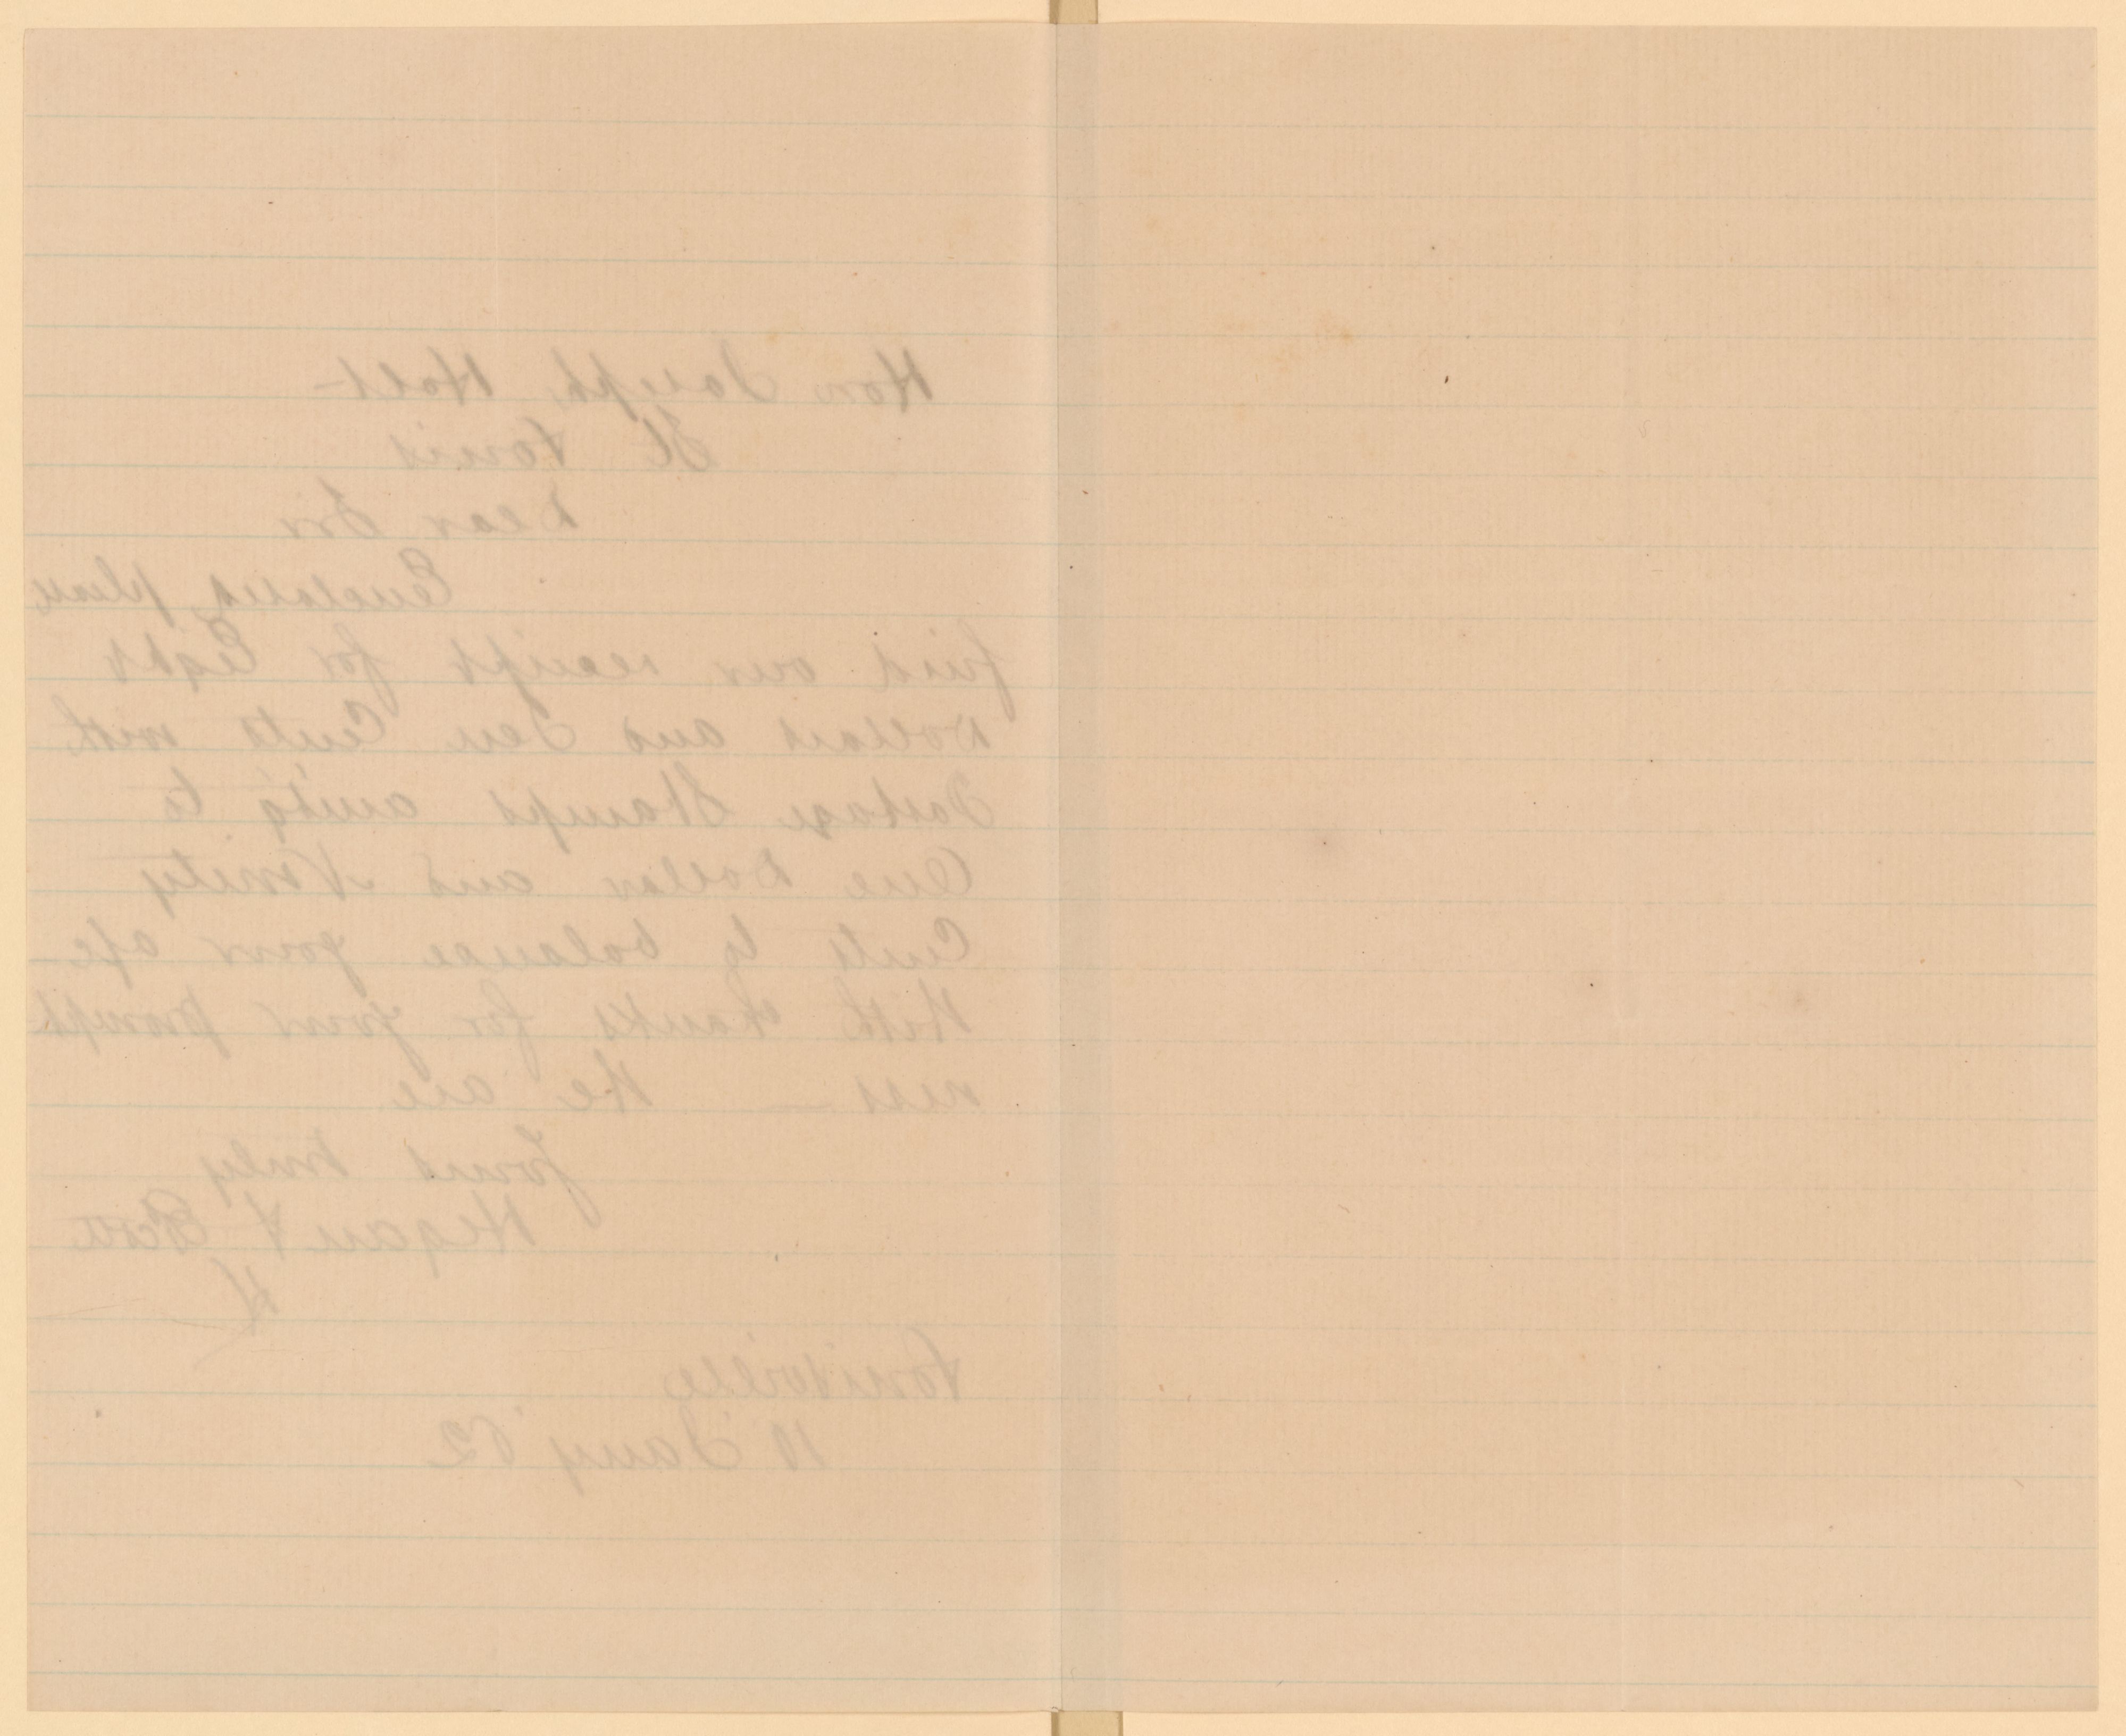 Hon Joseph Holt—
St Louis
Dear Sir
Enclosed please
find our receipt for Eight
Dollars and Ten Cents with
Postage Stamps amt'g to
One Dollar and Ninety
Cents to balance your a/c—
With thanks for your prompt
ness — We are
Yours truly
Hegan & Escott
H
Louisville
11 Jany '62